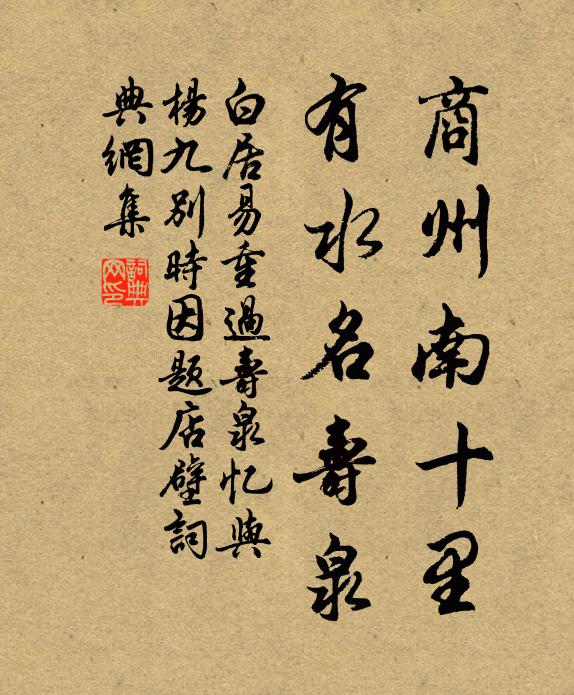 商州南十里
有水名壽泉
白居易重過壽泉忆與
楊九別時因題店壁詞
典網集
詞典
网印